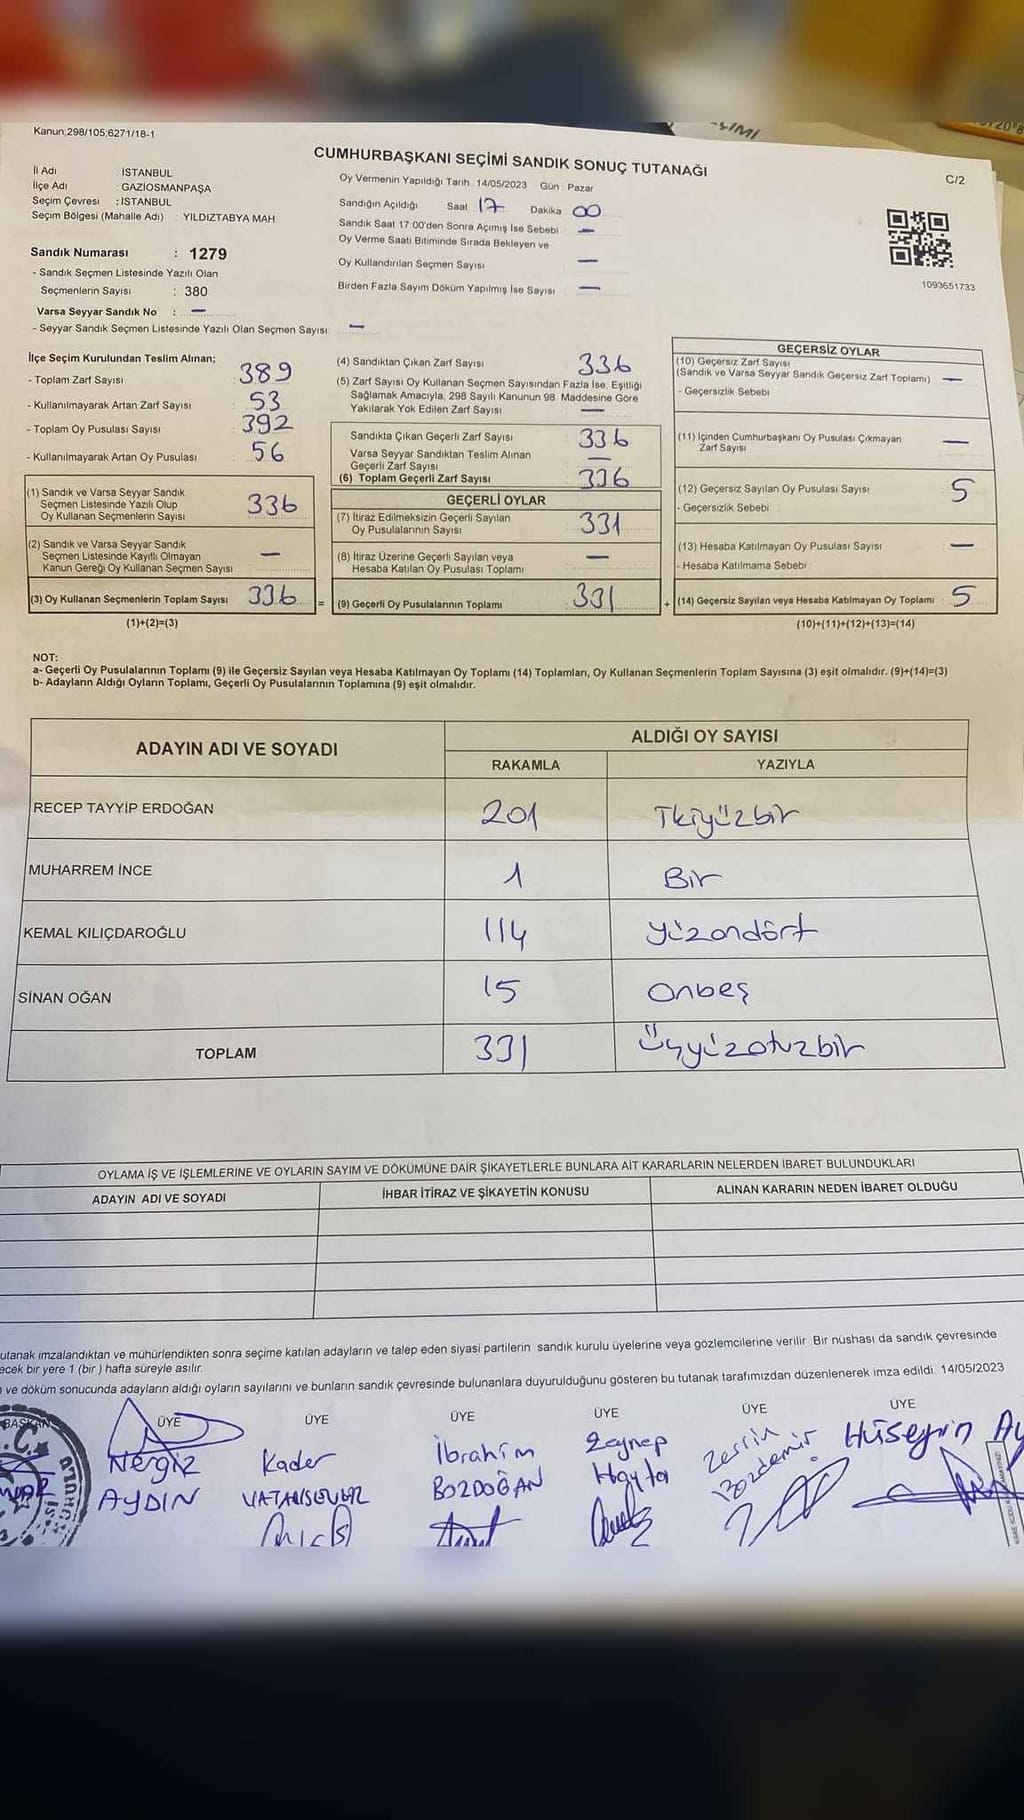 Kanun;298/105;6271/18-1
CUMHURBAŞKANI SEÇİMİ SANDIK SONUÇ TUTANAĞI
C/2
İl Adı : İSTANBUL
İlçe Adı : GAZİOSMANPAŞA
Seçim Çevresi : İSTANBUL
Seçim Bölgesi (Mahalle Adı) : YILDIZTABYA MAH.
Oy Vermenin Yapıldığı Tarih : 14/05/2023 Gün : Pazar
Sandığın Açıldığı Saat 17 Dakika 00
Sandık Saat 17:00'den Sonra Açımış İse Sebebi : —
Oy Verme Saati Bitiminde Sırada Bekleyen ve
Oy Kullandırılan Seçmen Sayısı —
Birden Fazla Sayım Döküm Yapılmış İse Sayısı : —
1093651733
Sandık Numarası : 1279
- Sandık Seçmen Listesinde Yazılı Olan
Seçmenlerin Sayısı : 380
Varsa Seyyar Sandık No : —
- Seyyar Sandık Seçmen Listesinde Yazılı Olan Seçmen Sayısı: —
İlçe Seçim Kurulundan Teslim Alınan;
- Toplam Zarf Sayısı 389
- Kullanılmayarak Artan Zarf Sayısı 53
- Toplam Oy Pusulası Sayısı 392
- Kullanılmayarak Artan Oy Pusulası 56
(1) Sandık ve Varsa Seyyar Sandık
Seçmen Listesinde Yazılı Olup
Oy Kullanan Seçmenlerin Sayısı 336
(2) Sandık ve Varsa Seyyar Sandık
Seçmen Listesinde Kayıtlı Olmayan
Kanun Gereği Oy Kullanan Seçmen Sayısı —
(3) Oy Kullanan Seçmenlerin Toplam Sayısı 336 =
(1)+(2)=(3)
(4) Sandıktan Çıkan Zarf Sayısı 336
(5) Zarf Sayısı Oy Kullanan Seçmen Sayısından Fazla İse, Eşitliği
Sağlamak Amacıyla, 298 Sayılı Kanunun 98. Maddesine Göre
Yakılarak Yok Edilen Zarf Sayısı —
Sandıkta Çıkan Geçerli Zarf Sayısı 336
Varsa Seyyar Sandıktan Teslim Alınan
Geçerli Zarf Sayısı —
(6) Toplam Geçerli Zarf Sayısı 336
GEÇERLİ OYLAR
(7) İtiraz Edilmeksizin Geçerli Sayılan
Oy Pusulalarının Sayısı 331
(8) İtiraz Üzerine Geçerli Sayılan veya
Hesaba Katılan Oy Pusulası Toplamı —
(9) Geçerli Oy Pusulalarının Toplamı : 331 +
GEÇERSİZ OYLAR
(10) Geçersiz Zarf Sayısı
(Sandık ve Varsa Seyyar Sandık Geçersiz Zarf Toplamı) —
- Geçersizlik Sebebi :
(11) İçinden Cumhurbaşkanı Oy Pusulası Çıkmayan
Zarf Sayısı —
(12) Geçersiz Sayılan Oy Pusulası Sayısı 5
- Geçersizlik Sebebi :
(13) Hesaba Katılmayan Oy Pusulası Sayısı —
- Hesaba Katılmama Sebebi :
(14) Geçersiz Sayılan veya Hesaba Katılmayan Oy Toplamı : 5
(10)+(11)+(12)+(13)=(14)
NOT:
a- Geçerli Oy Pusulalarının Toplamı (9) ile Geçersiz Sayılan veya Hesaba Katılmayan Oy Toplamı (14) Toplamları, Oy Kullanan Seçmenlerin Toplam Sayısına (3) eşit olmalıdır. (9)+(14)=(3)
b- Adayların Aldığı Oyların Toplamı, Geçerli Oy Pusulalarının Toplamına (9) eşit olmalıdır.
ADAYIN ADI VE SOYADI ALDIĞI OY SAYISI
RAKAMLA YAZIYLA
RECEP TAYYİP ERDOĞAN 201 İkiyüzbir
MUHARREM İNCE 1 Bir
KEMAL KILIÇDAROĞLU 114 yüzondört
SİNAN OĞAN 15 Onbeş
TOPLAM 331 Üçyüzotuzbir
OYLAMA İŞ VE İŞLEMLERİNE VE OYLARIN SAYIM VE DÖKÜMÜNE DAİR ŞİKAYETLERLE BUNLARA AİT KARARLARIN NELERDEN İBARET BULUNDUKLARI
ADAYIN ADI VE SOYADI İHBAR İTİRAZ VE ŞİKAYETİN KONUSU ALINAN KARARIN NEDEN İBARET OLDUĞU
utanak imzalandıktan ve mühürlendikten sonra seçime katılan adayların ve talep eden siyasi partilerin sandık kurulu üyelerine veya gözlemcilerine verilir. Bir nüshası da sandık çevresinde
ecek bir yere 1 (bir) hafta süreyle asılır.
ve döküm sonucunda adayların aldığı oyların sayılarını ve bunların sandık çevresinde bulunanlara duyurulduğunu gösteren bu tutanak tarafımızdan düzenlenerek imza edildi. 14/05/2023
BAŞKAN ÜYE ÜYE ÜYE ÜYE ÜYE ÜYE
Nergiz Kader İbrahim Zeynep Zerrin Hüseyin Ay
AYDIN VATANSEVER BOZDOĞAN Hayta Bozdemir